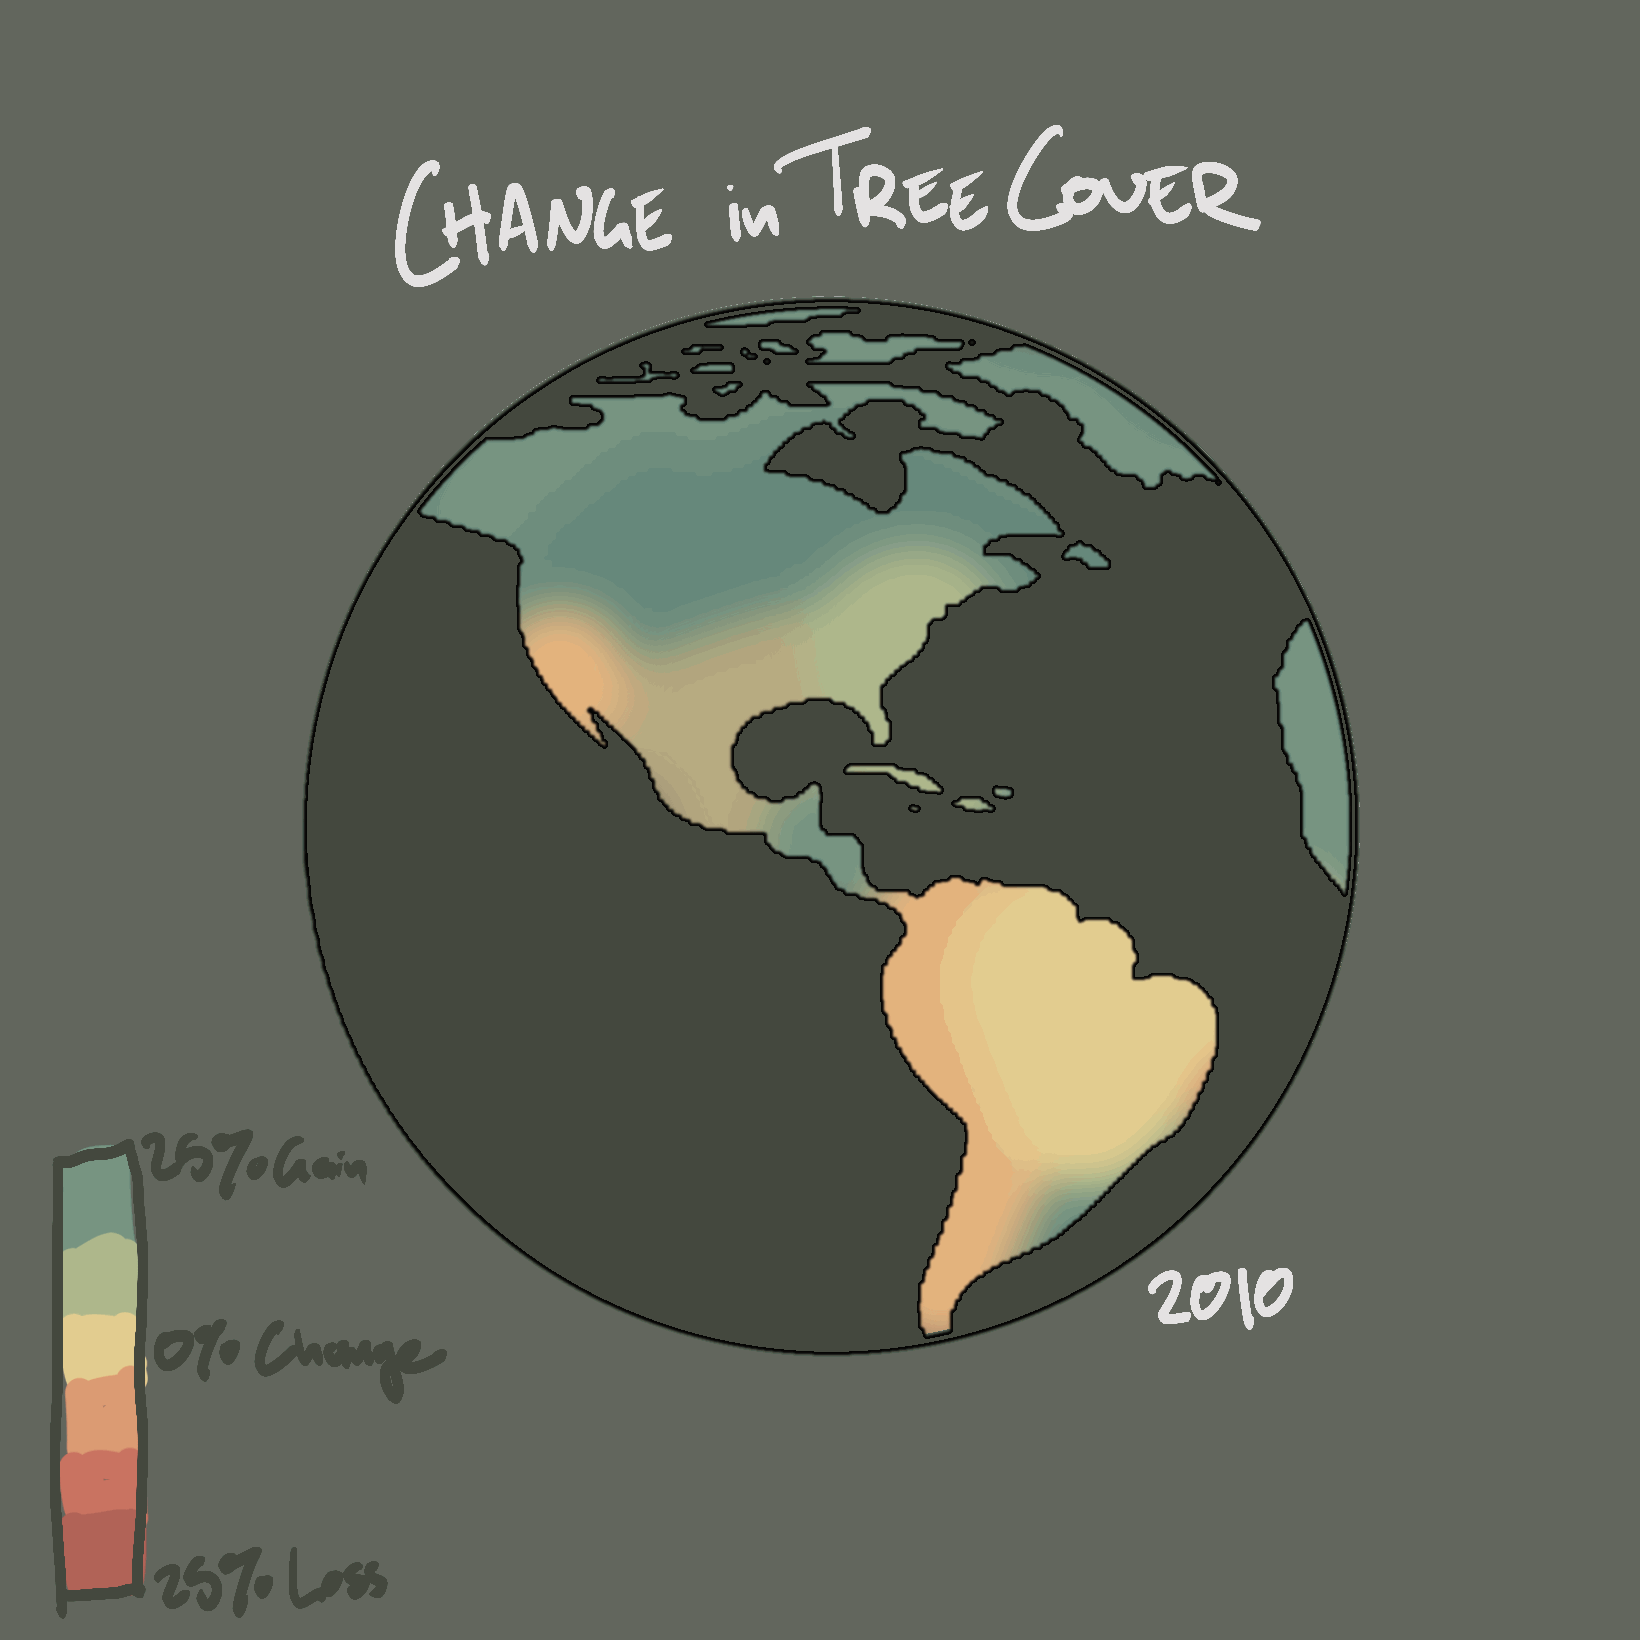 CHANGE in TREE COVER
25% Gain
0% Change
25% Loss
2010